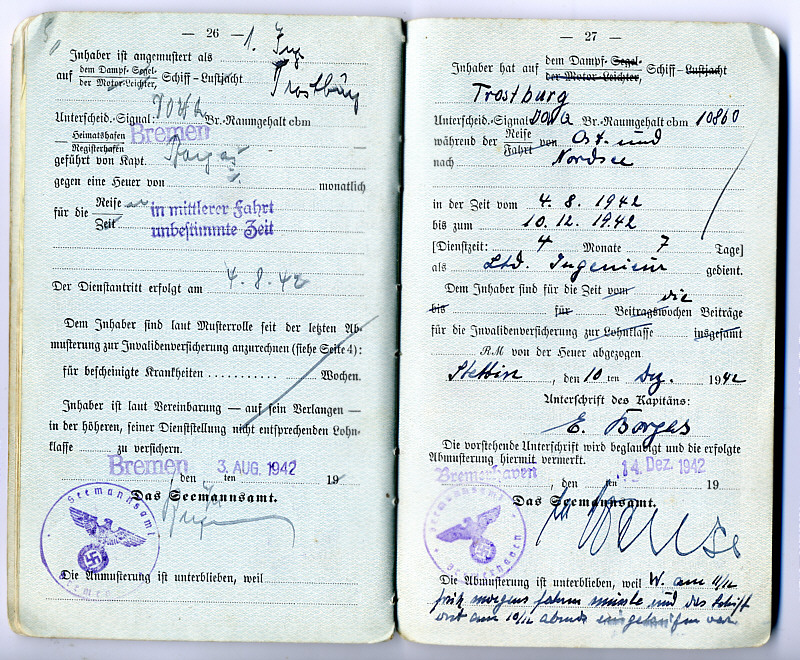 — 26 —
Inhaber ist angemustert als 1. Ing
auf dem Dampf-Segel-
der Motor-Leichter, Schiff-Lustjacht Trostburg
Unterscheid.-Signal: Br.-Raumgehalt cbm
Heimatshafen
Registerhafen Bremen
geführt von Kapt. Borges
gegen eine Heuer von monatlich
für die Reise
Zeit in mittlerer Fahrt
unbestimmte Zeit
Der Dienstantritt erfolgt am 4.8.42
Dem Inhaber sind laut Musterrolle seit der letzten Ab-
musterung zur Invalidenversicherung anzurechnen (siehe Seite 4):
für bescheinigte Krankheiten ........... Wochen.
Inhaber ist laut Vereinbarung — auf sein Verlangen —
in der höheren, seiner Dienststellung nicht entsprechenden Lohn-
klasse ........ zu versichern.
Bremen, den 3. AUG. 1942 ten 19
Das Seemannsamt.
Seemannsamt
Bremen
Die Anmusterung ist unterblieben, weil
— 27 —
Inhaber hat auf dem Dampf-Segel-
der Motor-Leichter, Schiff-Lustjacht
Trostburg
Unterscheid.-Signal DOVA Br.-Raumgehalt cbm 10860
während der Reise
Fahrt von Ost- und
nach Nordsee
in der Zeit vom 4. 8. 1942
bis zum 10. 12. 1942
[Dienstzeit: 4 Monate 7 Tage]
als Ltd. Ingenieur gedient.
Dem Inhaber sind für die Zeit vom die
bis für Beitragswochen Beiträge
für die Invalidenversicherung zur Lohnklasse insgesamt
RM von der Heuer abgezogen
Stettin, den 10 ten Dez. 1942
Unterschrift des Kapitäns:
E. Borges
Die vorstehende Unterschrift wird beglaubigt und die erfolgte
Abmusterung hiermit vermerkt.
Bremerhaven, den 14. Dez. 1942 ten 19
Das Seemannsamt.
Seemannsamt
Bremerhaven
Die Abmusterung ist unterblieben, weil W. am 11/12
früh morgens fahren musste und das Schiff
erst am 10/12 abends eingelaufen war.